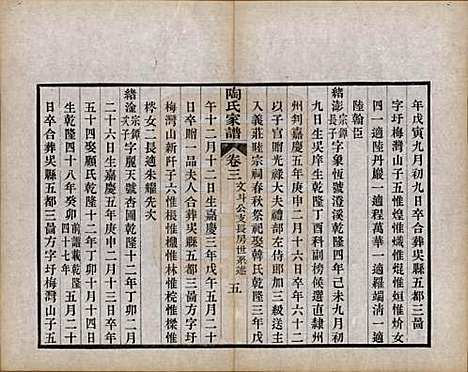 年戊寅九月初九日卒合葬吳縣五都三啚
字圩梅灣山子五惟煌惟熾惟焜惟烜惟炌女
四一適陸丹巖一適程萬華一適羅端清一適
陸翰臣
緒澎宗鐸子字象恆號澄溪乾隆四年己未九月初
九日生吳庠生乾隆丁酉科副榜候選直隸州
州判嘉慶五年庚申二月十六日卒年六十二
以子官贈光祿大夫禮部左侍郎加三級主送
入義莊陸宗祠春秋祭祀娶韓氏乾隆三年戊
陶氏家譜 卷三 文斗公支長房世系達 五
午十二月十二日生嘉慶三年戊午五月二十
日卒贈一品夫人合葬吳縣五都三啚方字圩
梅灣山新阡子六惟根惟橶惟林惟梡惟樑惟
梓女二長適朱燿先次
緒淦宗鐸子字麗天號杏圃乾隆十二年丁卯八月
二十六日生嘉慶五年庚申二月十三日卒年
五十四娶顧氏乾隆十二年丁卯十月十四日
生乾隆四十八年癸卯前譜載乾隆四十七年二月二十
日卒合葬吳縣五都三啚方字圩梅灣山子五